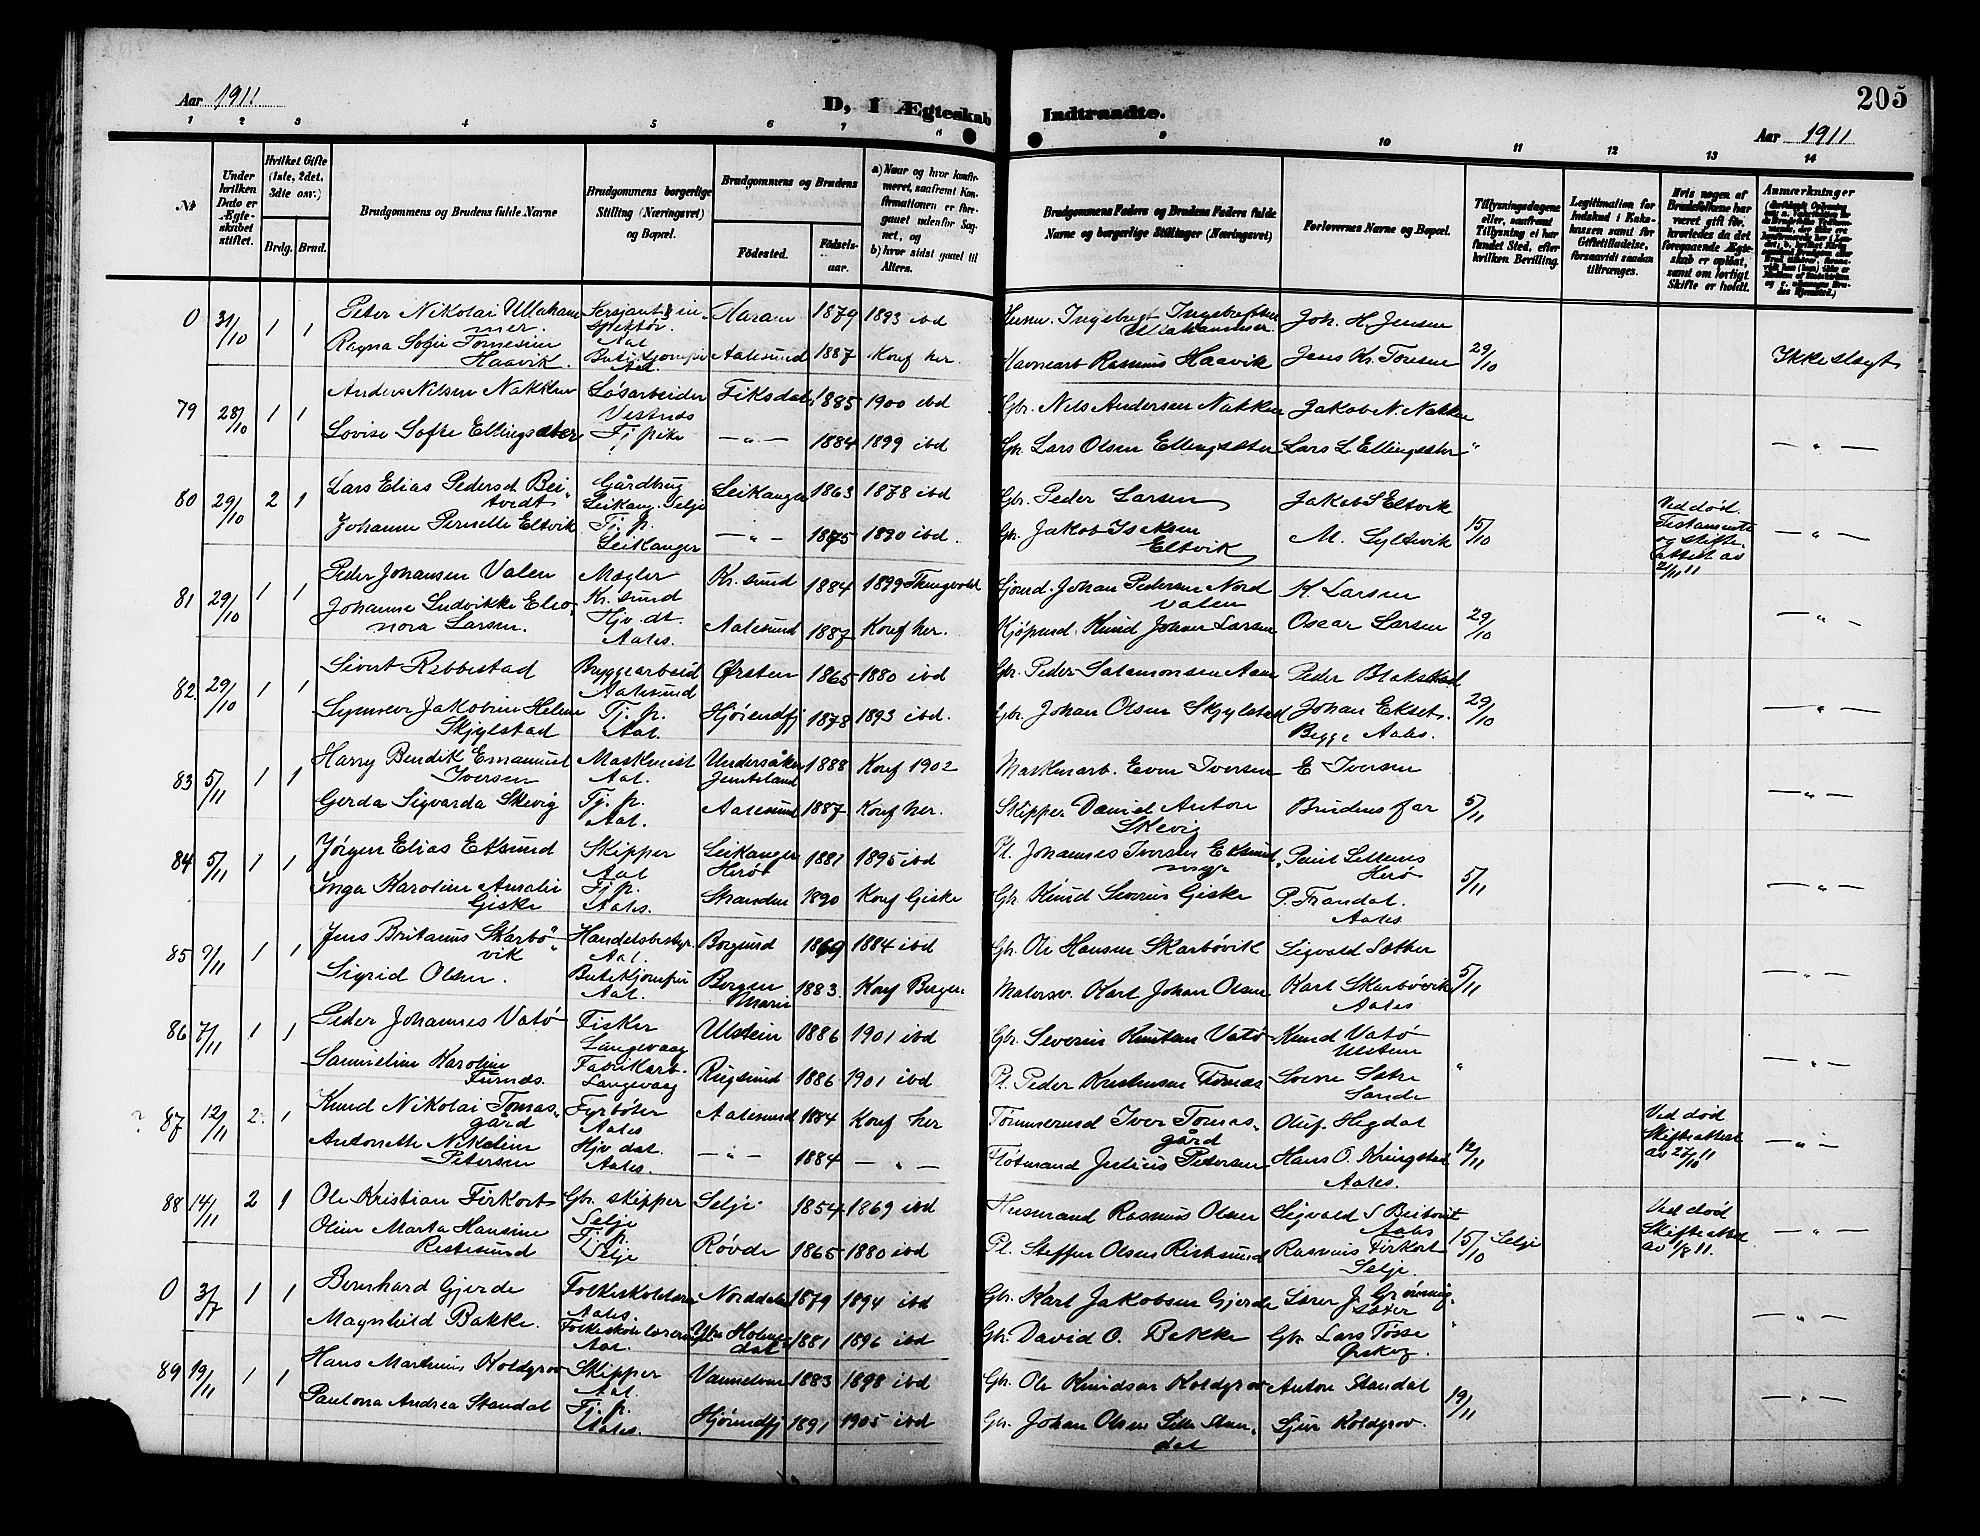 Aar 1911
D, I Ægteskab Indtraadte.
205
Aar 1911
1 2 3 4 5 6 7 8 9 10 11 12 13 14
Nr
Under hvilken Dato er Ægteskabet stiftet.
Hvilket Gifte (1ste, 2det, 3die osv.)
Brdg. Brud.
Brudgommens og Brudens fulde Navne
Brudgommens borgerlige Stilling (Næringsvei) og Bopæl.
Brudgommens og Brudens
Fødested.
Fødselsaar.
a) Naar og hvor konfirmeret, saafremt Konfirmationen er foregaaet udenfor Sognet, og
b) hvor sidst gaaet til Alters.
Brudgommens Faders og Brudens Faders fulde Navne og borgerlige Stillinger (Næringsvei)
Forlovernes Navne og Bopæl.
Tillysningsdagene eller, saafremt Tillysning ei har fundet Sted, efter hvilken Bevilling.
Legitimation for Indskud i Enkekassen samt for Giftetilladelse, forsaavidt saadan tiltrænges.
Hvis nogen af Brudefolkene har været gift før, hvorledes da det foregaaende Ægteskab er opløst, samt om lovligt Skifte er holdt.
Anmærkninger
0 31/10 1 1 Peter Nikolai Ullahammer. Aal Haram 1879 1893 ibd Ingebrigt Ingebrigtsen Ullahammer Joh. H. Jensen
Haavik. Aalesund 1887 Konf her. Havnearb Rasmus Haavik Jens Kr. Toresen 29/10 Ikke slegt
79 28/10 1 1 Anders Nilsen Nakken Løsarbeider Vestnes Fiksdal 1885 1900 ibd Gbr. Nils Andersen Nakken Jakob N. Nakken
Lovise Sofie Ellingsæter Tj. pike — " — 1884 1899 ibd Gbr. Lars Olsen Ellingsæter Lars L Ellingsæter " — " —
80 29/10 2 1 Lars Elias Pedersen Gårdbrug Leikang. Selje Leikanger 1863 1878 ibd Gbr. Peder Larsen Jakob S Eltvik Ved død.
Johanne Pernelle Eltvik Tj. p. Leikanger — " — 1875 1890 ibd. Gbr. Jakob Iseksen Eltvik M. Syltevik 15/10 — " —
81 29/10 1 1 Peder Johansen Valen Mægler Kr. sund Kr. sund 1884 1899 Tingvold Gjomd. Johan Pedersen Nord Valen K. Larsen
Johanne Ludvikke Eleonora Larsen. Hjv. dt. Aales. Aalesund 1887 Konf her. Kjøpmd. Knud Johan Larsen Oscar Larsen 29/10 — " —
82. 29/10 1 1 Sivert Rebbestad Bryggearbeid Aalesund Ørsten 1865 1880 ibd Gbr. Peder Salamonsen Aam Peder Blakstad
Synneve Jakobine Helene Skjylstad Tj. p. Aal. Hjørendfj 1878 1893 ibd. Gbr. Johan Olsen Skjylstad Johan Ekset. Begge Aales. 29/10 — " —
83 5/11 1 1 Harry Bendik Emanuel Iversen Maskinist Aal. Undersåker Jemteland 1888 Konf 1902 Maskinarb. Even Iversen E Iversen
Gerda Sigvarda Skevig Tj. p. Aal. Aalesund 1887 Konf her. Skipper David Anton Skevig Brudens far 5/11 — " —
84 5/11 1 1 Jørgen Elias Eksund Skipper Aal Leikanger Herøe 1881 1895 ibd Pl. Johannes Iversen Eksund Herø
Inga Karoline Amalie Giske Tj. p. Aales. Stranden 1890 Konf Giske Gbr. Knud Severin Giske P. Trandal. Aales 5/11 — " —
85 1 1 Jens Britanus Skarbøvik Handelsbestyr. Aal. Borgund 1869 1884 ibd Gbr. Ole Hansen Skarbøvik Sigvald Sætter
Sigrid Olsen. Butikjomfru Aal. Bergen 1883. Konf Bergen Karl Johan Olsen Karl Skarbøvik Aales 5/11 — " —
86 7/11 1 1 Peder Johannes Vatø Fisker Langevaag Ulstein 1886 1901 ibd Gbr. Severin Knutsen Vatø Knud Vatø Ulstein
Samueline Karoline Furnæs. Fabrikarb. Langevaag Rugsund 1886 1901 ibd Pl. Peder Kristensen Furnæs Sande " — " —
? 87 12/11 2. 1 Knud Nikolai Tomasgård Fyrbøter Aales Aalesund 1884 Konf her Tømmermd Iver Tomasgård Oluf Hegdal Ved død
Antonette Nikoline Petersen Hjv dat. Aales. — " — 1884 — " — Julius Petersen Hans O. Kringstad Aales. 12/11 Skifteattest av 27/10 11 — " —
88 14/11 2 1 Ole Kristian Firkort Gbr. skipper Selje Selje 1854 1869 ibd Husmand Rasmus Olsen Aales Ved død
Oline Marta Hansine Ristesund Tj. p. Selje Røvde 1865 1880 ibd Pl. Steffen Olsen Ristesund Rasmus Firkort Selje. 15/10 Selje Skifteattest av 1/8 11. — " —
0 3/7 1 1 Bernhard Gjerde Aales. Norddalen 1879 1894 ibd Gbr. Karl Jakobsen Gjerde
Magnhild Bakke. Aal. 1881 1896 ibd Gbr. David O. Bakke Gbr. Lars Tøsse Ørskog. " — " —
89 19/11 1 1 Hans Martinus Koldgrov Skipper Aal. Vannelven 1883 1898 ibd Gbr. Ole Knudsen Koldgrov Anton Standal
Paulona Andrea Standal Tj. p. Aales. Hjørundfj 1891 1905 ibd Gbr. Johan Olsen Standal Sjur Koldgrov. 19/11 — " —